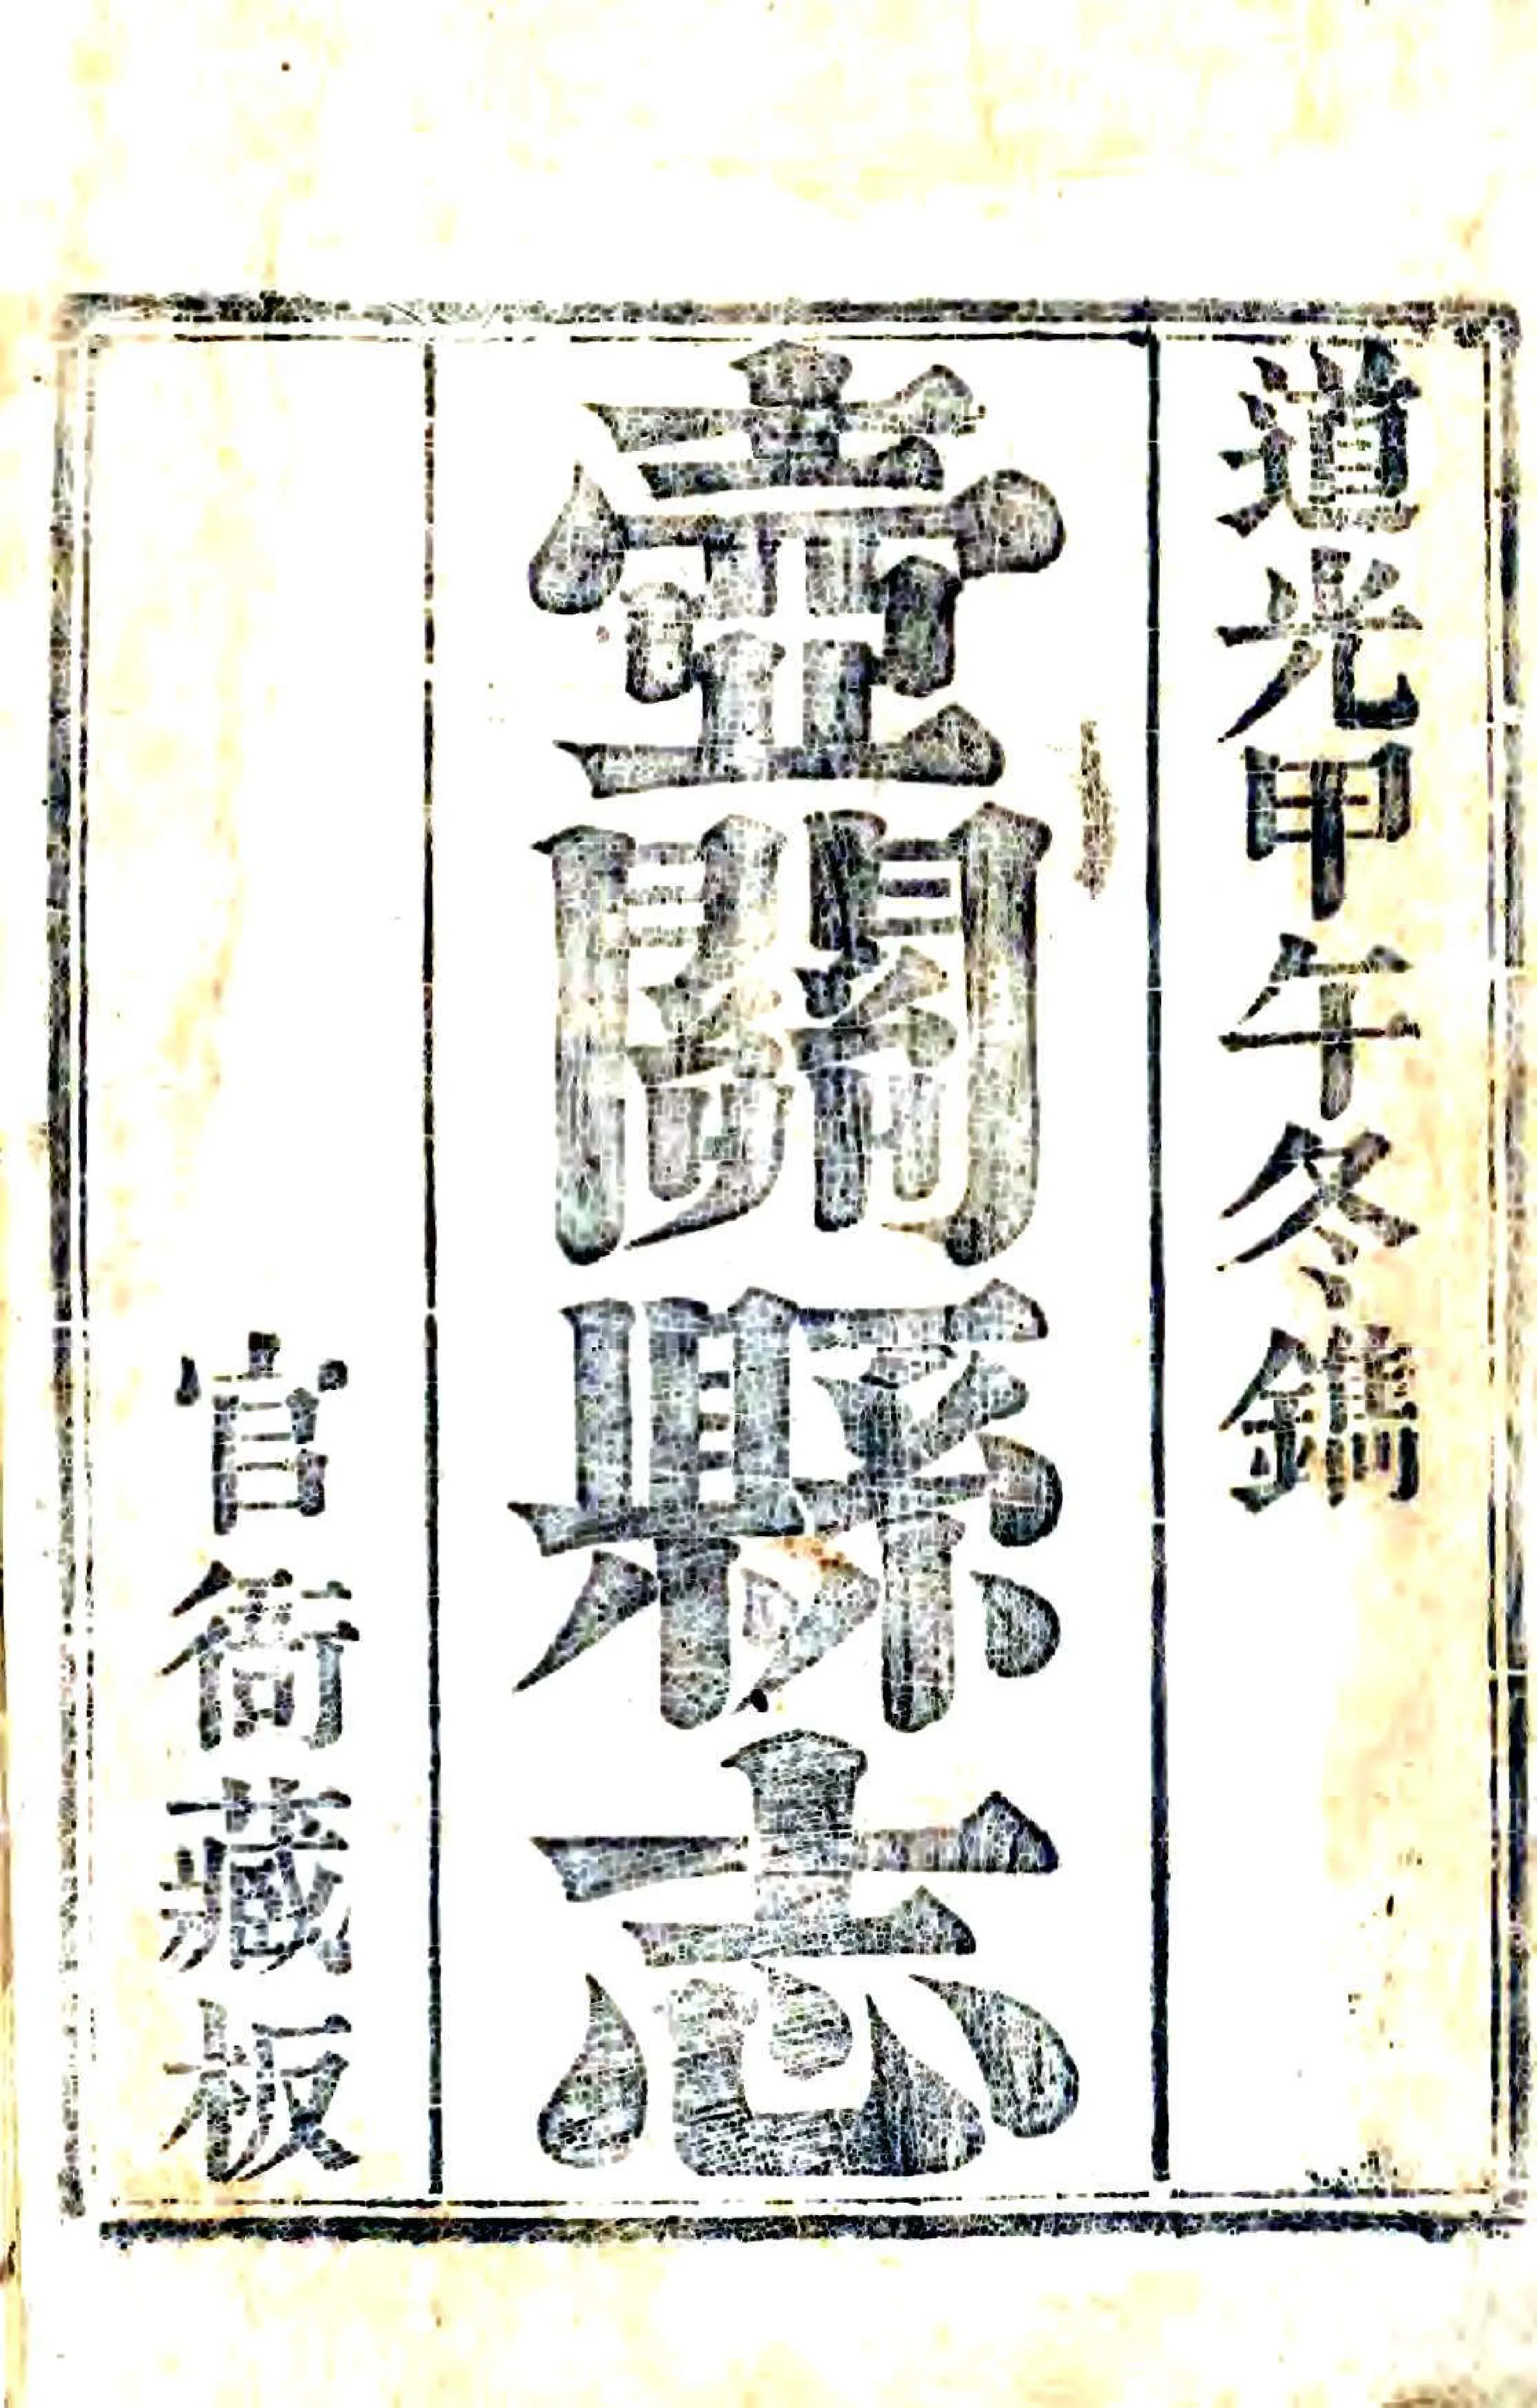 道光甲午冬鐫
壺關縣志
官衙藏板